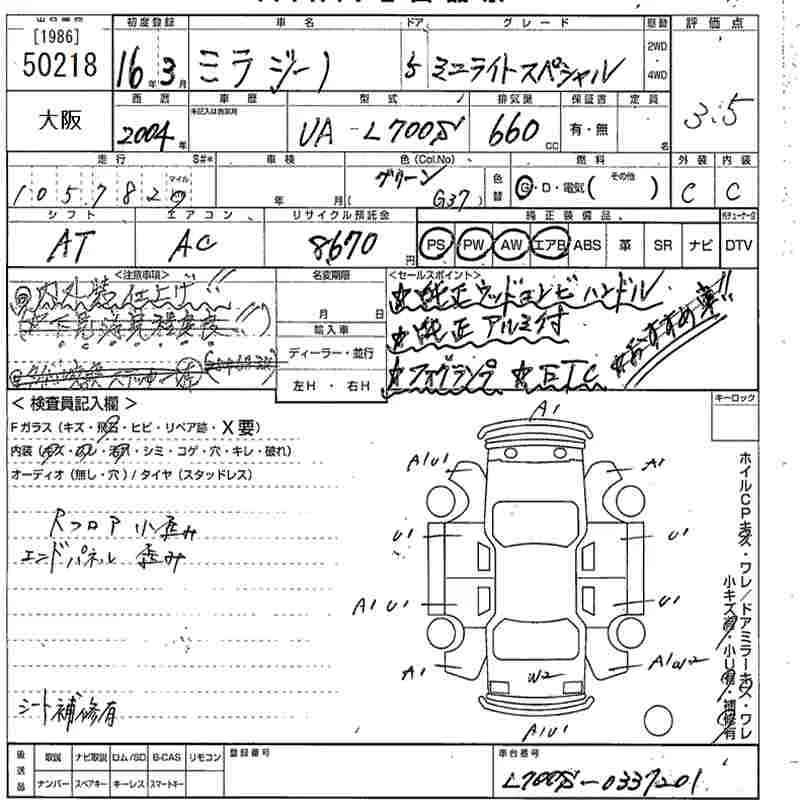 [1986]
50218
大阪
初度登録 車名 ドア グレード 駆動 評価点
16年3月 ミラジーノ 5 ミニライトスペシャル 2WD・4WD 3.5
西暦 車歴 型式 排気量 保証書 定員
2004年 未記入は自家用 UA-L700S 660cc 有・無 名
走行 S#* 車検 色(Col.No) 色替 燃料 外装 内装
マイル 年 月 グリーン (G37) G・D・電気( その他 ) C C
シフト エアコン リサイクル預託金 純正装備品
AT AC 8670円 PS PW AW エアB ABS 革 SR ナビ DTV
<注意事項> 名変期限 <セールスポイント>
内外装仕上げ!! 月 日 ☆純正ウッドコンビハンドル
輸入車 ☆純正アルミ付
ディーラー・並行 ☆フォグランプ ☆ETC ☆おすすめ車!!
左H・右H
<検査員記入欄> キーロック
Fガラス(キズ・飛石・ヒビ・リペア跡・X要)
内装(キズ・ワレ・汚れ・シミ・コゲ・穴・キレ・破れ)
オーディオ(無し・穴)/タイヤ(スタッドレス)
Rフロア小歪み
エンドパネル歪み
シート補修有
A1
A1U1 A1
U1 U1
A1 U1 U1
A1 W2 A1W2
A1U1
ホイルCPキズ・ワレ/ドアミラーキズ・ワレ
小キズ・小U・補修有
後送品 取説 ナビ取説 ロム/SD B-CAS リモコン 登録番号 車台番号
ナンバー スペアキー キーレス スマートキー L700S-0337201